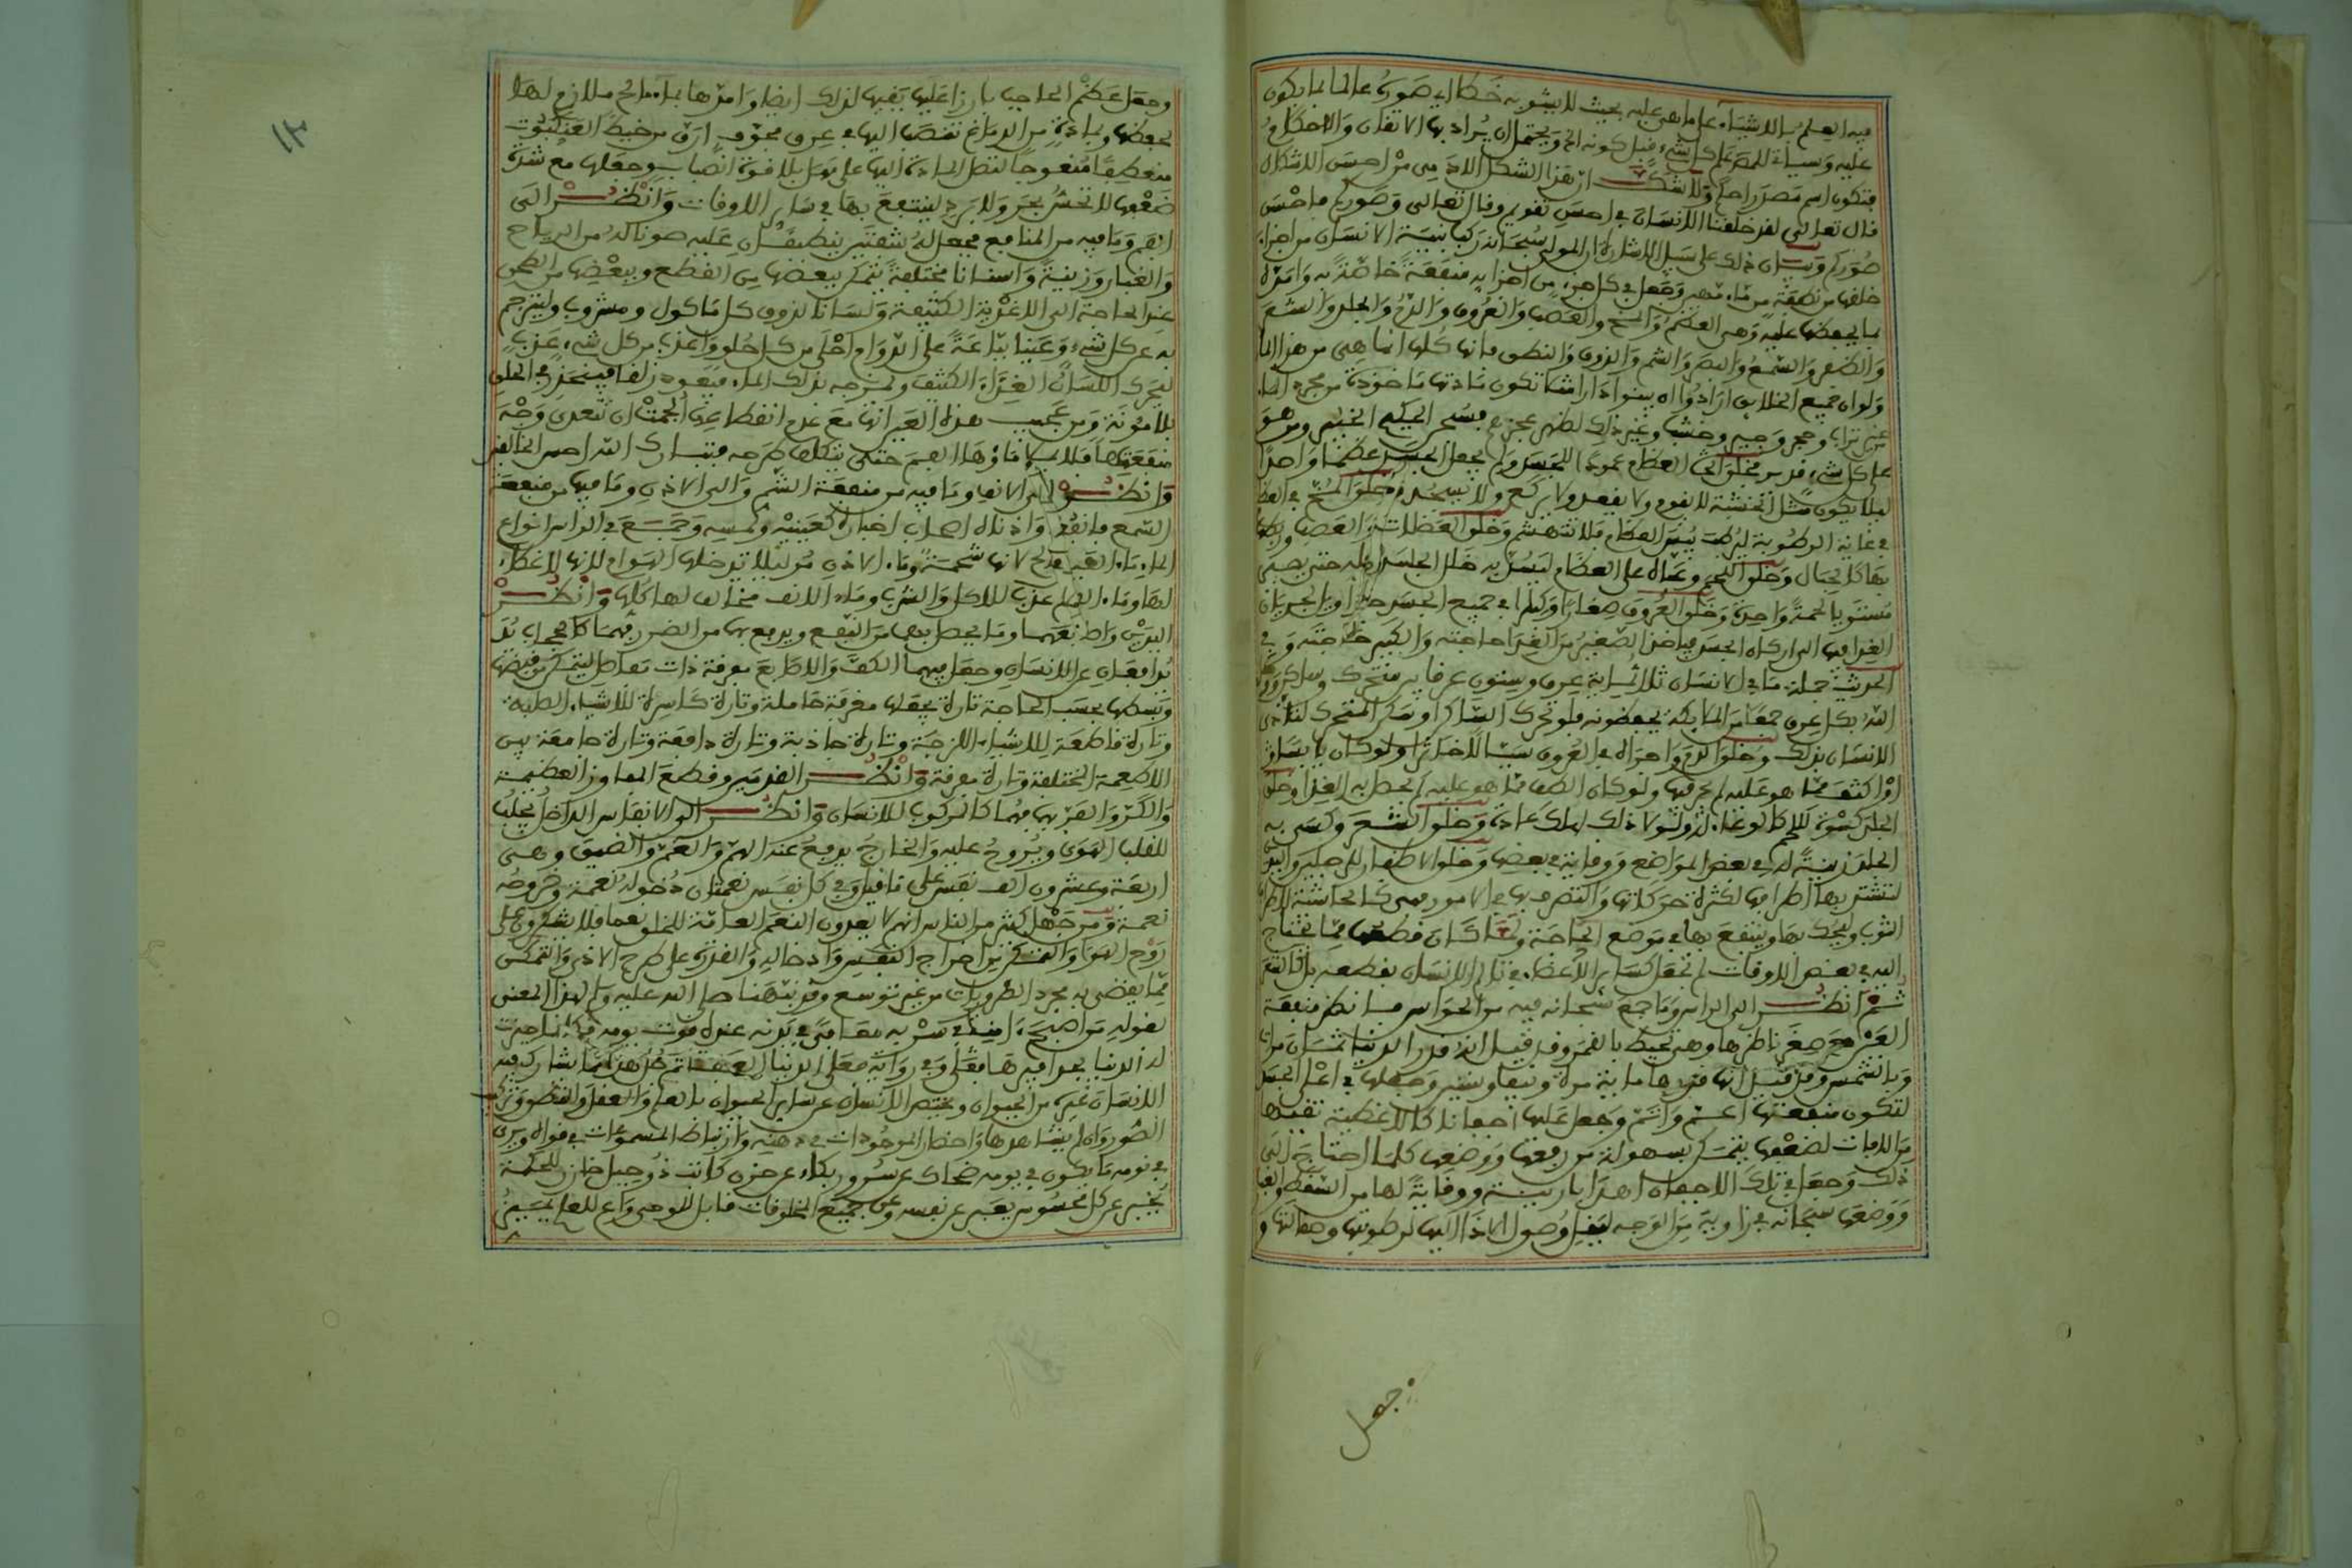 فيه العلم بالاشياء على ما هى عليه بحيث لا يشوبه خطا اى صورة عالما بما يكون
عليه وسياق للمصر علم كل شىء قبل كونه الخ ويحتمل ان يراد بها الاتقان والاحكام
فتكون اسم مصدر احكم ولا شك ان هذا الشكل الادمى من احسن الاشكال
قال تعالى لقد خلقنا الانسان فى احسن تقويم وقال تعالى وصوركم فاحسن
صوركم وبيان ذلك على سبيل الاشارة ان المولى سبحانه ركب بنية الانسان من اجزاء
خلقها من نطفة من ماء مهين وجعل فى كل جزء من اجزايه منفعة خاصة به وامده
بما يحفظها عليه وهى العظم والمخ والعصب والعروق والدم والجلد والشعر
والظفر والسمع والبصر والشم والذوق والنطق فانها كلها انما هى من هذا الما
ولو ان جميع الخلايق ارادوا ان يبنوا دارا شا تكون مادتها ماخوذة من مجرد الما
غير تراب وحجر وجير وخشب وغير ذلك لظهر عجزهم فسبحن الحكيم الخبير ومن هو
على كل شىء قدير فخلق العظام عمودا للجسد ولم يجعل الجسد عظما واحدا
ليلا يكون مثل الخشبة لا يقوم ولا يقعد ولا يركع ولا يسجد وخلق المخ فى العظم
فى غاية الرطوبة ليرطب يبس العظام فلا تنهشم وخلق العضلات والعصب وربط
بها كالحبال وخلق اللحم وعباه على العظام ليسد به خلل الجسد كله حتى يصير
مستويا لحمة واحدة وخلق العروق صغارا وكبارا فى جميع الجسد جداول لجريان
الغذا فيها الى اركان الجسد فياخذ الصغير من الغذا حاجته والكبير حاجته وفى
الحديث جملة ما فى الانسان ثلاثماية عرق وستون عرقا بين متحرك وساكن وكل
الله بكل عرق جمعا من الملايكة يحفظونه فلو تحرك الساكن او سكن المتحرك لتاذى
الانسان بذلك وخلق الدم واجراه فى العروق سيالا خاثرا ولو كان يابسا او
او اكثف مما هو عليه لم يجر فيها ولو كان الطف مما هو عليه لم يحصل به الغذا وخلق
الجلد كسوة للحم كالوعاء له ولولا ذلك لهلك عادة وخلق الشعر وكسى به
الجلد زينة له فى بعض المواضع ووقاية فى بعض وخلق الاظفار للرجلين واليدين
لتشتد بها اطرافها لكثرة حركاتها والتصرف بها فى الامور وهى كالحاشية لاطراف
الثوب وليحك بها وينتفع بها فى موضع الحاجة ولما كان قطعها مما يحتاج
اليه فى بعض الاوقات لم تجعل كساير الاعضاء فى تالم الانسان بقطعه بل كالشعر
ثم انظر الى الراس وما جمع سبحانه فيه من الحواس فسانظر منفعة
العين مع صغر ناظرها وهى تحيط بالقمر وقد قيل انه قدر الدنيا ثمان مرات
وبالشمس وقد قيل انها قدرها ماية مرة ونيفا وستين وجعلها فى اعلى الجسد
لتكون منفعتها اعم واتم وجعل عليها اجفانا كالاغطية تقيها
من الافات لضعفها يتمكن بسهولة من رفعها ووضعها كلما احتاج الى
ذلك وجعل فى تلك الاجفان اهدابا زينة ووقاية لها من السقط والغبار
ووضعها سبحانه فى زاوية من الوجه ليقل وصول الاذا اليها لرطوبتها وصقالتها و
جعل
١٢
وجعل عظم الحاجب بارزا عليها يقيها لذلك ايضا وامدها بماء مالح ملازم لها
يحفظها وبمادة من الدماغ تنصب اليها فى عرق مجوف ارق من خيط العنكبوت
منعطفا منعوجا لتصل المادة اليها على مهل بلا قوة انصباب وجعلها مع شدة
ضعفها لا تخش بحر ولا برد لينتفع بها فى ساير الاوقات وانظر الى
الفم وما فيه من المنافع فجعل له شفتين ينطبقان عليه صونا له من الرياح
والغبار وزينة واسنانا مختلفة يتمكن ببعضها من القطع وببعضها من الطحن
عند الحاجة الى الاغذية الكثيفة ولسانا لذوق كل ماكول ومشروب وليترجم
به عن كل شىء وعينا نباعة على الدوام احلى من كل حلو واعذب من كل شىء عذب
ليحرك اللسان الغذاء الكثيف ويمزجه بذلك الماء فيعود زلقا فينحدر فى الحلق
بلا مونة ومن عجيب هذه العين انها مع عدم انقطاعها لجمت ان تتعدى وجه
منفعتها فلا يملا ماوها الفم حتى يتكلف طرحه فتبارك الله احسن الخالقين
وانظر الى الانف وما فيه من منفعة الشم والى الاذن وما فيها من منفعة
السمع فانفه واذناه اصحاب اخبار كعينيه ولمسه وجمع فى الراس انواع
الماء ماء العين مالح لانها شحمة وماء الاذن مر ليلا تدخلها الهوام لانها لا غطاء
لها وماء الفم عذب للاكل والشرب وماء الانف مخالف لها كلها وانظر
اليدين واصابعهما وما يحصل بهما من النفع ويدفع بهما من الضرر فهما كالحجاب
يدافعان عن الانسان وجعل فيهما الكف والاصابع مفرقة ذات مفاصل ليتمكن من قبضها
وبسطها بحسب الحاجة تارة يجعلها مغرفة حاملة وتارة كاسرة للاشياء الصلبة
وتارة قاطعة للاشياء اللزجة وتارة جاذبة وتارة دافعة وتارة جامعة بين
الاطعمة المختلفة وتارة مفرقة وانظر القدمين وقطع المفاوز العظيمة
والكر والفر بهما فهما كالمركوب للانسان وانظر الى الانفاس الداخل يجلب
للقلب الهوى ويروح عليه والخارج يدفع عنه الهم والغم والضيق وهى
اربعة وعشرون الف نفس على ما قيل وفى كل نفس نعمتان دخوله نعمة وخروجه
نعمة ومن جهل كثير من الناس انهم لا يعدون النعم العامة للخلق نعما فلا يشكرون على
روح الهوا والتمكن من اخراج النفس وادخاله والقدرة على طرح الاذى والتمكن
مما يقضى به مجرد الضروريات من غير توسع وقد نبهنا صلى الله عليه وسلم لهذا المعنى
بقوله من اصبح امنا فى سربه معافى فى بدنه عنده قوت يومه فكانما حيزت
له الدنيا بحذافيرها
الانسان غيره من الحيوان ويختص الانسان عن ساير الحيوان بالعلم والعقل والنطق
فى نومه ما يكون فى يومه ضحاك عن سرور بكاء عن حزن كاتب ذو حيل خازن للحكمة
يخبر عن كل محسوس يعبر عن نفسه وعن جميع المخلوقات قابل للوحى واع للعلم